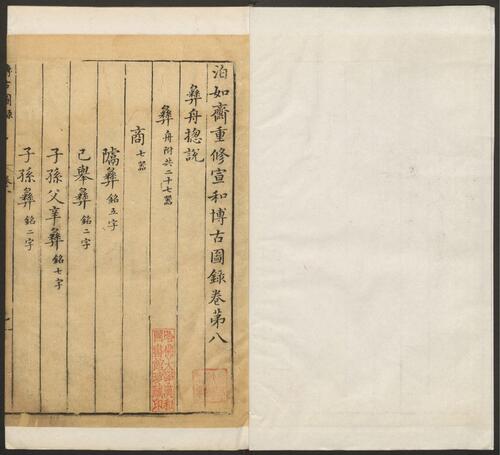 泊如齋重修宣和博古圖錄卷第八
彝舟揔說
彝舟附共二十七器
商七器
隲彝銘五字
己舉彝銘二字
子孫父辛彝銘七字
子孫彝銘二字